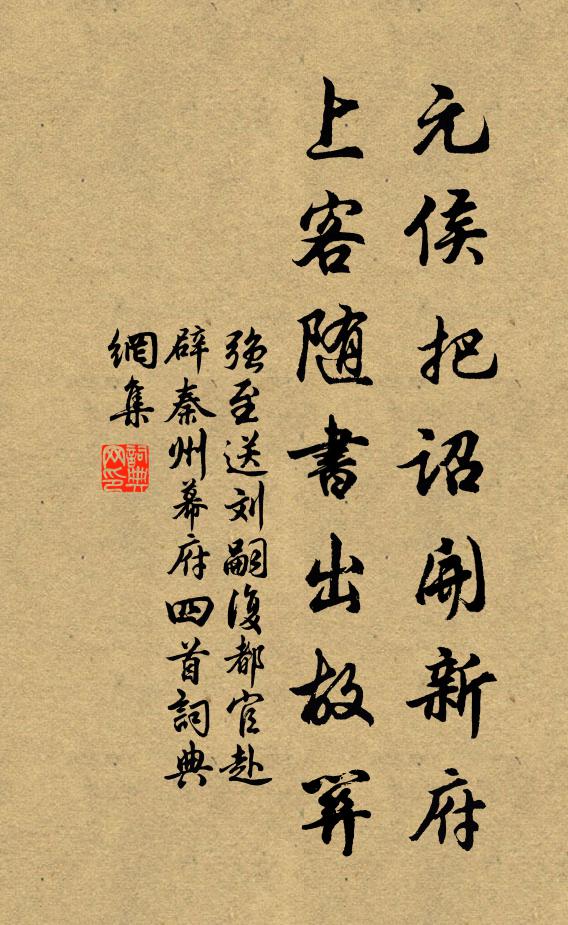 元侯把詔開新府
上客随書出故關
强至送刘嗣復都官赴
辟秦州幕府四首詞典
網集
詞典
网印